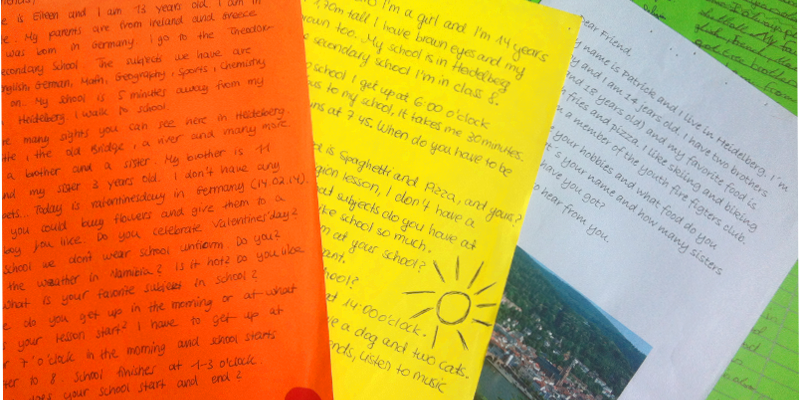 is Eileen and I am 13 years old. I am in
My parents are from Ireland and Greece
was born in Germany. I go to the Theodor-
econdary School. The subjects we have are
nglish, German, Math, Geography, Sports, Chemistry
on. My school is 5 minutes away from my
Heidelberg. I walk to school.
e many sights you can see here in Heidelberg.
the old Bridge, a river and many more.
a brother and a sister. My brother is 11
nd my sister 3 years old. I don't have any
ets. Today is valentinesday in Germany (14.02.14).
you could buy flowers and give them to a
boy you like. Do you celebrate valentines'day?
school we don't wear school uniform. Do you?
the weather in Namibia? Is it hot? Do you like
what is your favorite subject in school?
e do you get up in the morning or at what
s your lesson start? I have to get up at
7 o'clock in the morning and school starts
ter to 8. School finishes at 1-3 o'clock.
does your school start and end?
I'm a girl and I'm 14 years
,70m tall I have brown eyes and my
rown too. My school is in Heidelberg
e secondary school I'm in class 8.
o school I get up at 6:00 o'clock
us to my school, it takes me 30 minutes.
ns at 7:45. When do you have to be
d is Spaghetti and Pizza, and yours?
gion lesson, I don't have a
at subjects do you have at
ke school so much.
m at your school?
ant.
hool?
at 14:00 o'clock.
e a dog and two cats.
ends, listen to music
Dear Friend,
name is Patrick and I live in Heidelberg. I'm
y and I am 14 years old. I have two brothers
and 18 years old) and my favorite food is
h fries and pizza. I like skiing and biking
a member of the youth fire figters club.
e your hobbies and what food do you
t's your name and how many sisters
have you got?
o hear from you.